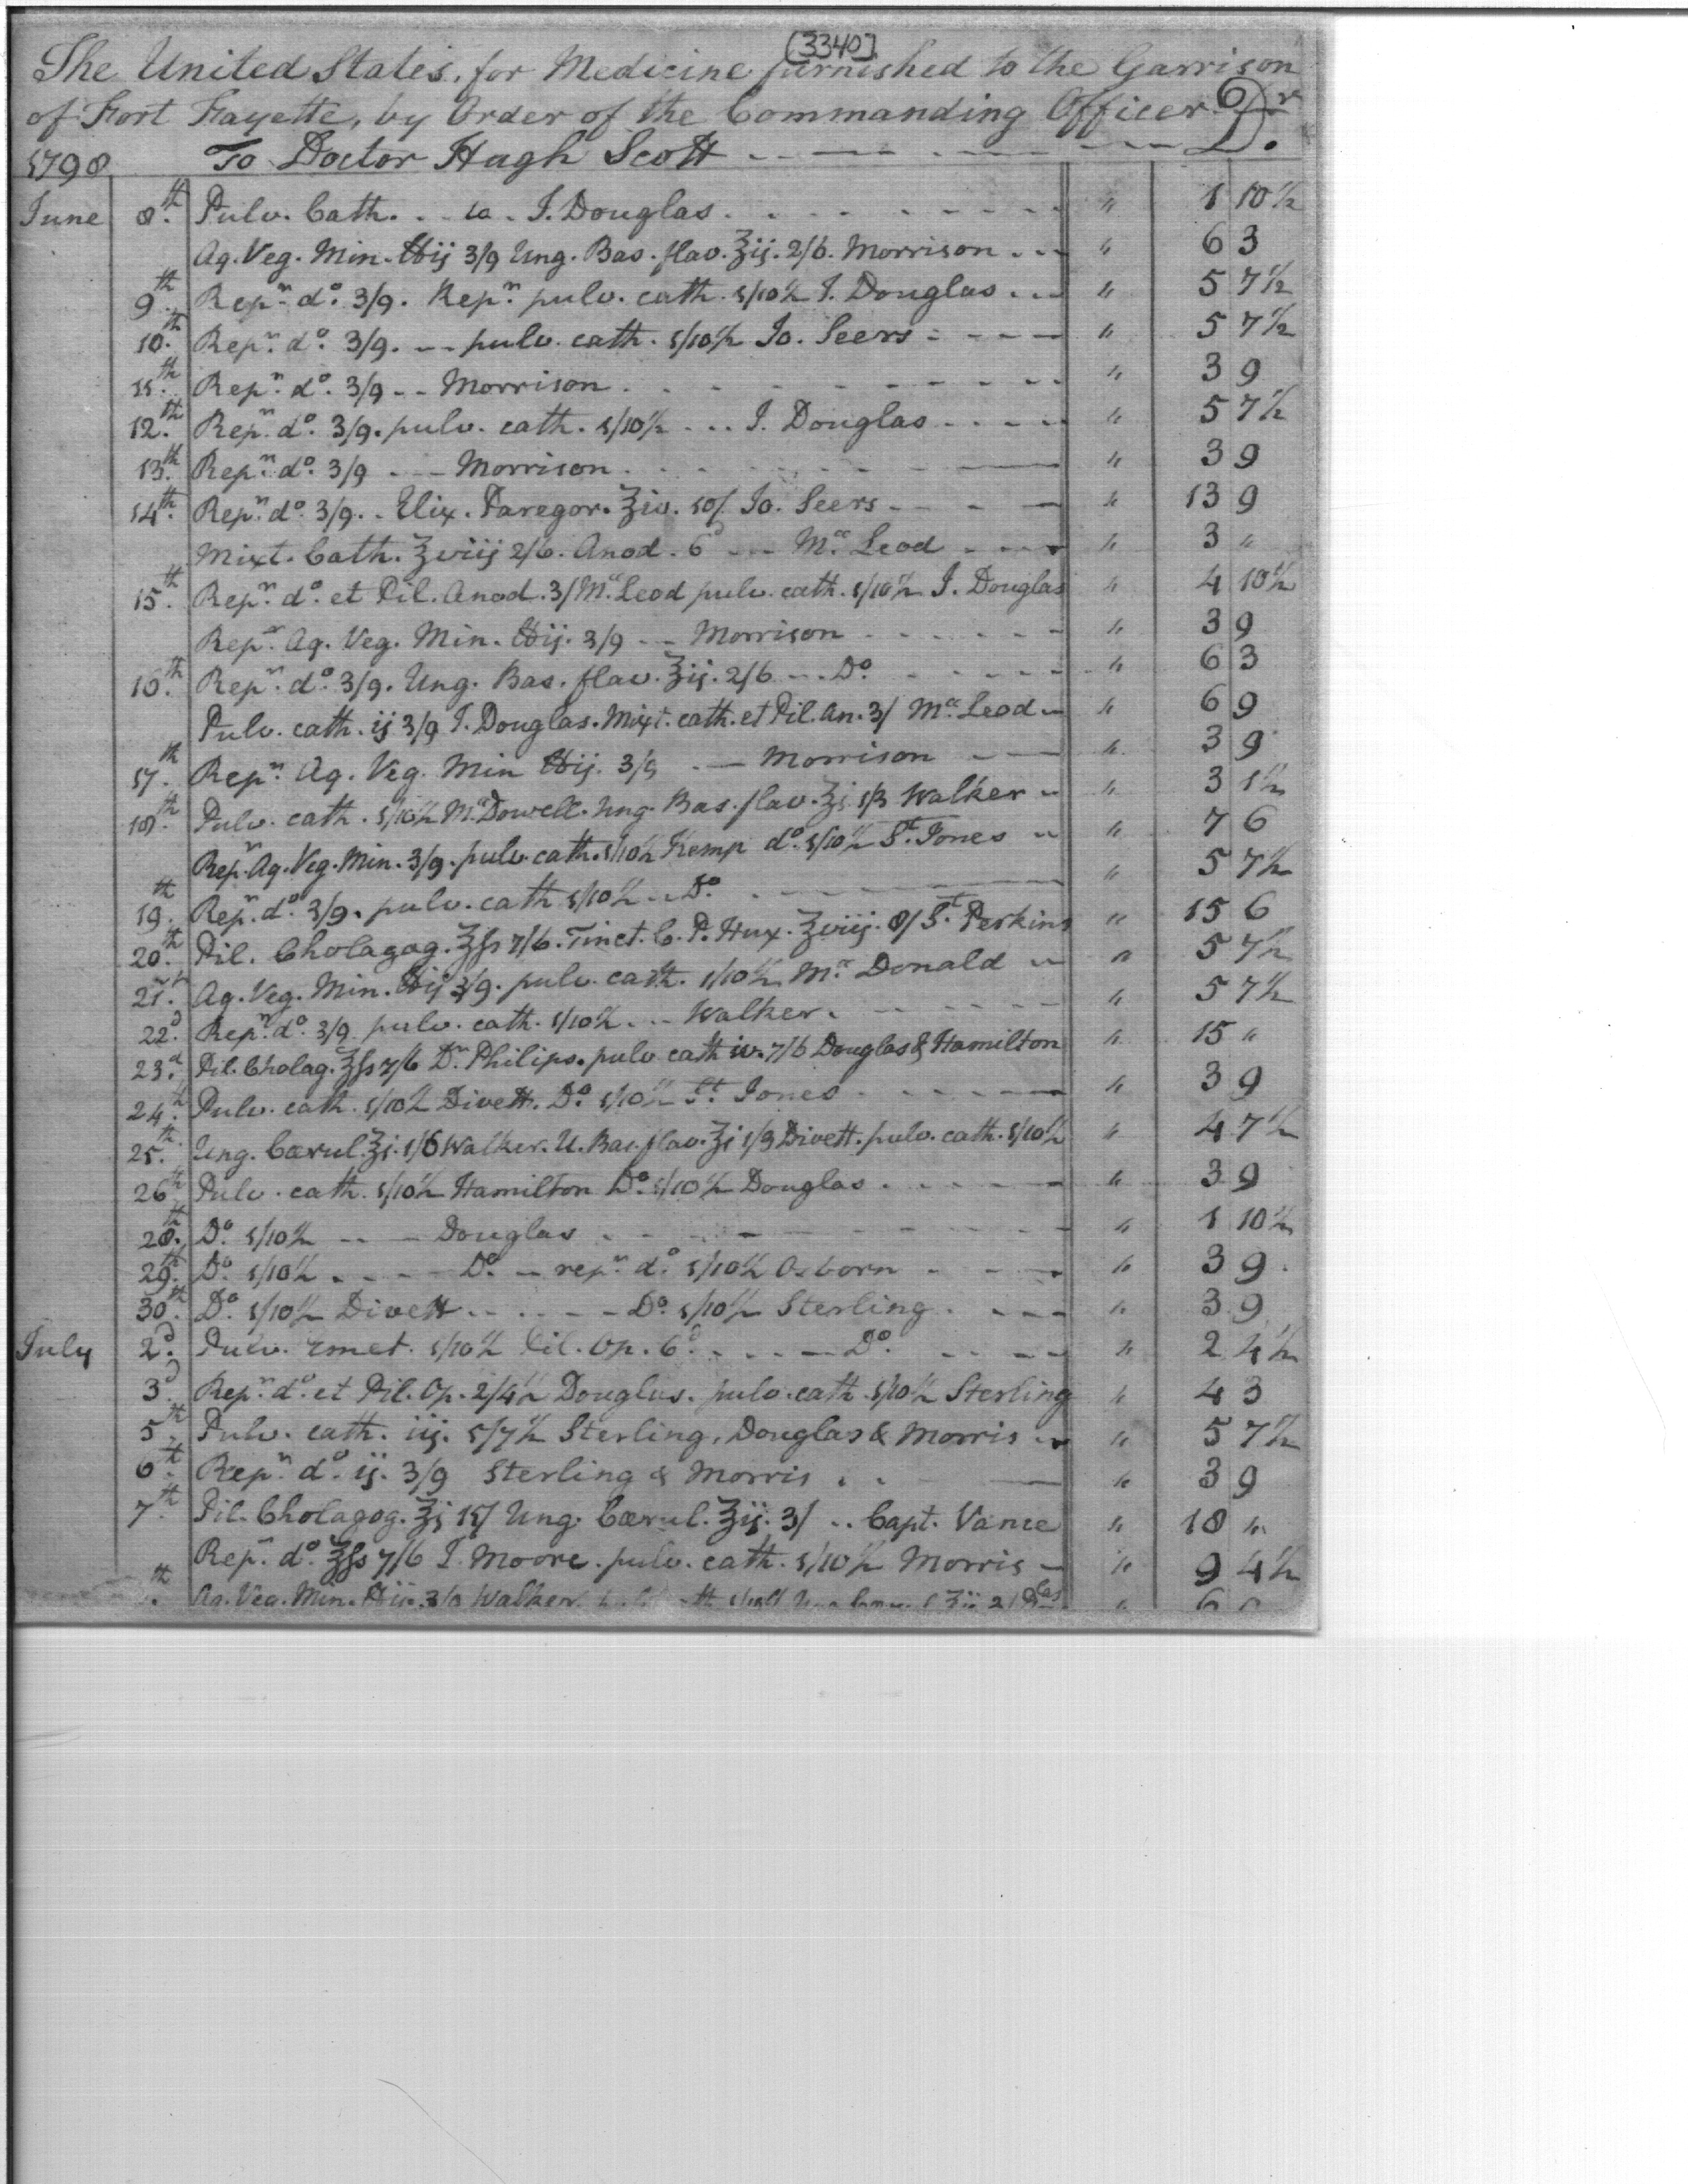 [3340]
The United States, for Medicine furnished to the Garrison
of Fort Fayette, by Order of the Commanding Officer Dr.
1798 To Doctor Hugh Scott
June 8th. Pulv. Cath. J. Douglas " 1 10½
Aq. Veg. Min. ℔ij 3/9 Ung. Bas. flav. ℥ij. 2/6. Morrison " 6 3
9th. Repn. do. 3/9. Repn. pulv. cath. 1/10½ J. Douglas " 5 7½
10th. Repn. do. 3/9. pulv. cath. 1/10½ Jo. Seers " 5 7½
11th. Repn. do. 3/9 Morrison " 3 9
12th. Repn. do. 3/9. pulv. cath. 1/10½ J. Douglas " 5 7½
13th. Repn. do. 3/9 Morrison " 3 9
14th. Repn. do. 3/9. Elix. Paregor. ℥iv. 10/ Jo. Seers " 13 9
Mixt. Cath. ℥viij 2/6. Anod. 6d Mc. Leod " 3 "
15th. Repn. do. et Pil. Anod. 3/ Mc. Leod pulv. cath. 1/10½ J. Douglas " 4 10½
Repn. Aq. Veg. Min. ℔ij. 3/9 Morrison " 3 9
16th. Repn. do. 3/9. Ung. Bas. flav. ℥ij. 2/6 Do. " 6 3
Pulv. cath. ij 3/9 J. Douglas. Mixt. cath. et Pil. An. 3/ Mc. Leod " 6 9
17th. Repn. Aq. Veg. Min ℔ij. 3/9 Morrison " 3 9
18th. Pulv. cath. 1/10½ McDowell. Ung. Bas. flav. ℥j. 1/3 Walker " 3 1½
Repn. Aq. Veg. Min. 3/9. pulv. cath. 1/10½ Kemp do. 1/10½ St. Jones " 7 6
19th. Repn. do. 3/9. pulv. cath 1/10½ Do. " 5 7½
20th. Pil. Cholagog. ℥ſs 7/6. Tinct. C. P. Hux. ℥viij. 8/ St. Perkins " 15 6
21st. Aq. Veg. Min. ℔ij 3/9. pulv. cath. 1/10½ Mc. Donald " 5 7½
22d. Repn. do. 3/9 pulv. cath. 1/10½ Walker. " 5 7½
23d. Pil. Cholag. ℥ſs 7/6 Dr. Philips. pulv cath iv. 7/6 Douglas & Hamilton " 15 "
24th. Pulv. cath. 1/10½ Divett. Do. 1/10½ St. Jones " 3 9
25th. Ung. Cærul. ℥j. 1/6 Walker. U. Bas. flav. ℥j 1/3 Divett. pulv. cath. 1/10½ " 4 7½
26th Pulv. cath. 1/10½ Hamilton Do. 1/10½ Douglas " 3 9
28th. Do. 1/10½ Douglas " 1 10½
29th. Do. 1/10½ Do. repn. do. 1/10½ Osborn " 3 9
30th. Do. 1/10½ Divett Do. 1/10½ Sterling " 3 9
July 2d. Pulv. Emet. 1/10½ Pil. Op. 6d. Do. " 2 4½
3d. Repn. do. et Pil. Op. 2/4½ Douglas. pulv. cath. 1/10½ Sterling " 4 3
5th. Pulv. cath. iij. 5/7½ Sterling, Douglas & Morris " 5 7½
6th. Repn. do. ij. 3/9 Sterling & Morris " 3 9
7th. Pil. Cholagog. ℥j 15/ Ung. Cærul. ℥ij. 3/ Capt. Vance " 18 "
Repn. do. ℥ſs 7/6 J. Moore. pulv. cath. 1/10½ Morris " 9 4½
th. Aq. Veg. Min. ℔ij. 3/9 Walker.